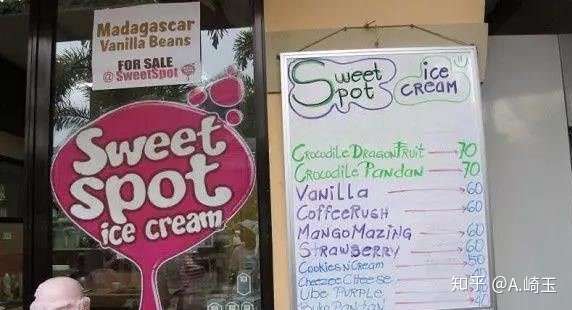 Madagascar
Vanilla Beans
FOR SALE
@ SweetSpot
Sweet
spot
ice cream
Sweet
Spot
ice
CREAM
CROCODILE DRAGONFRUIT 70
CROCODILE PANDAN 70
VANILLA 60
COFFEERUSH 60
MANGOMAZING 60
STRAWBERRY 60
COOKIESNCREAM 50
CHEEZEE CHEESE
UBE PURPLE
PANDAN
知乎 @A.崎玉